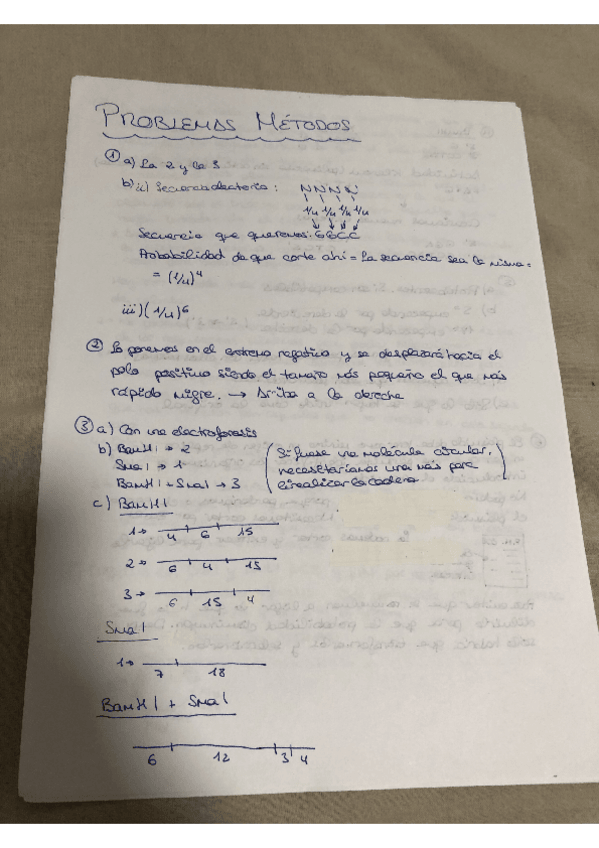 PROBLEMAS MÉTODOS
① a) La 2 y la 3
b) ii) Secuencia aleatoria: N N N N
1/4 1/4 1/4 1/4
Secuencia que queremos: GGCC
Probabilidad de que corte ahí = La secuencia sea la misma =
= (1/4)^4
iii) (1/4)^6
② Lo ponemos en el extremo negativo y se desplazará hacia el
polo positivo siendo el tamaño más pequeño el que más
rápido migre. → Arriba a la derecha
③ a) Con una electroforesis
b) BamHI → 2
SmaI → 1
BamHI + SmaI → 3
(Si fuese una molécula circular,
necesitaríamos una más para
linealizar la cadena)
c) BamHI
1→ 4 6 15
2→ 6 4 15
3→ 6 15 4
SmaI
1→ 7 18
BamHI + SmaI
6 12 3 4